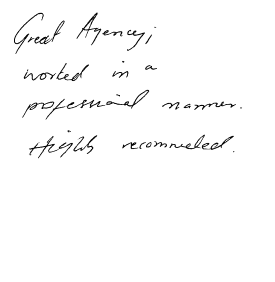 Great Agency;
worked in a
professional manner.
Highly recommended.